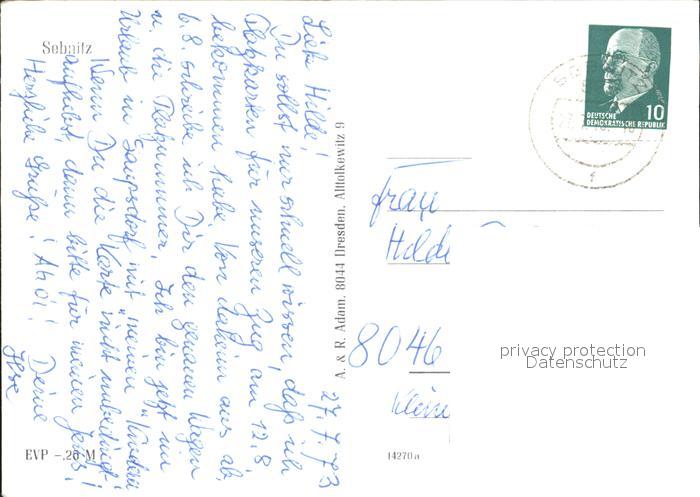 Sebnitz
27.7.73
Liebe Hilde!
Du sollst nur schnell wissen, daß ich
Platzkarten für unseren Zug am 12.8.
bekommen habe. Von daheim aus ab
6.8. schreibe ich Dir den genauen Wagen
u. die Platznummer. Ich bin jetzt im
Urlaub in Saupsdorf mit "meinen Kindern".
Wenn Du die Karte nicht unbedingt
aufhebst, dann bitte für meinen Jens!
Herzliche Grüße! Ahoi! Deine
Ilse
EVP -.20 M
A. & R. Adam, 8044 Dresden, Altolkewitz 9
14270 a
DEUTSCHE
DEMOKRATISCHE REPUBLIK
10
Frau
Hilde
8046
Klein
privacy protection
Datenschutz